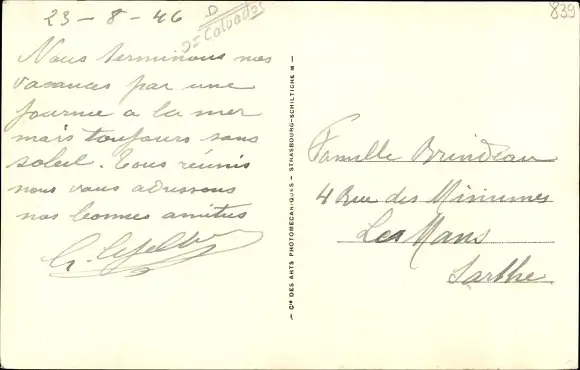 23 - 8 - 46
D = Calvados
839
Nous terminons nos
vacances par une
journee a la mer
mais toujours sans
soleil. Tous réunis
nous vous adressons
nos bonnes amities
Cie DES ARTS PHOTOMECANIQUES - STRASBOURG-SCHILTIGHEIM
Famille Brindeau
4 Rue des Minimes
Le Mans
Sarthe